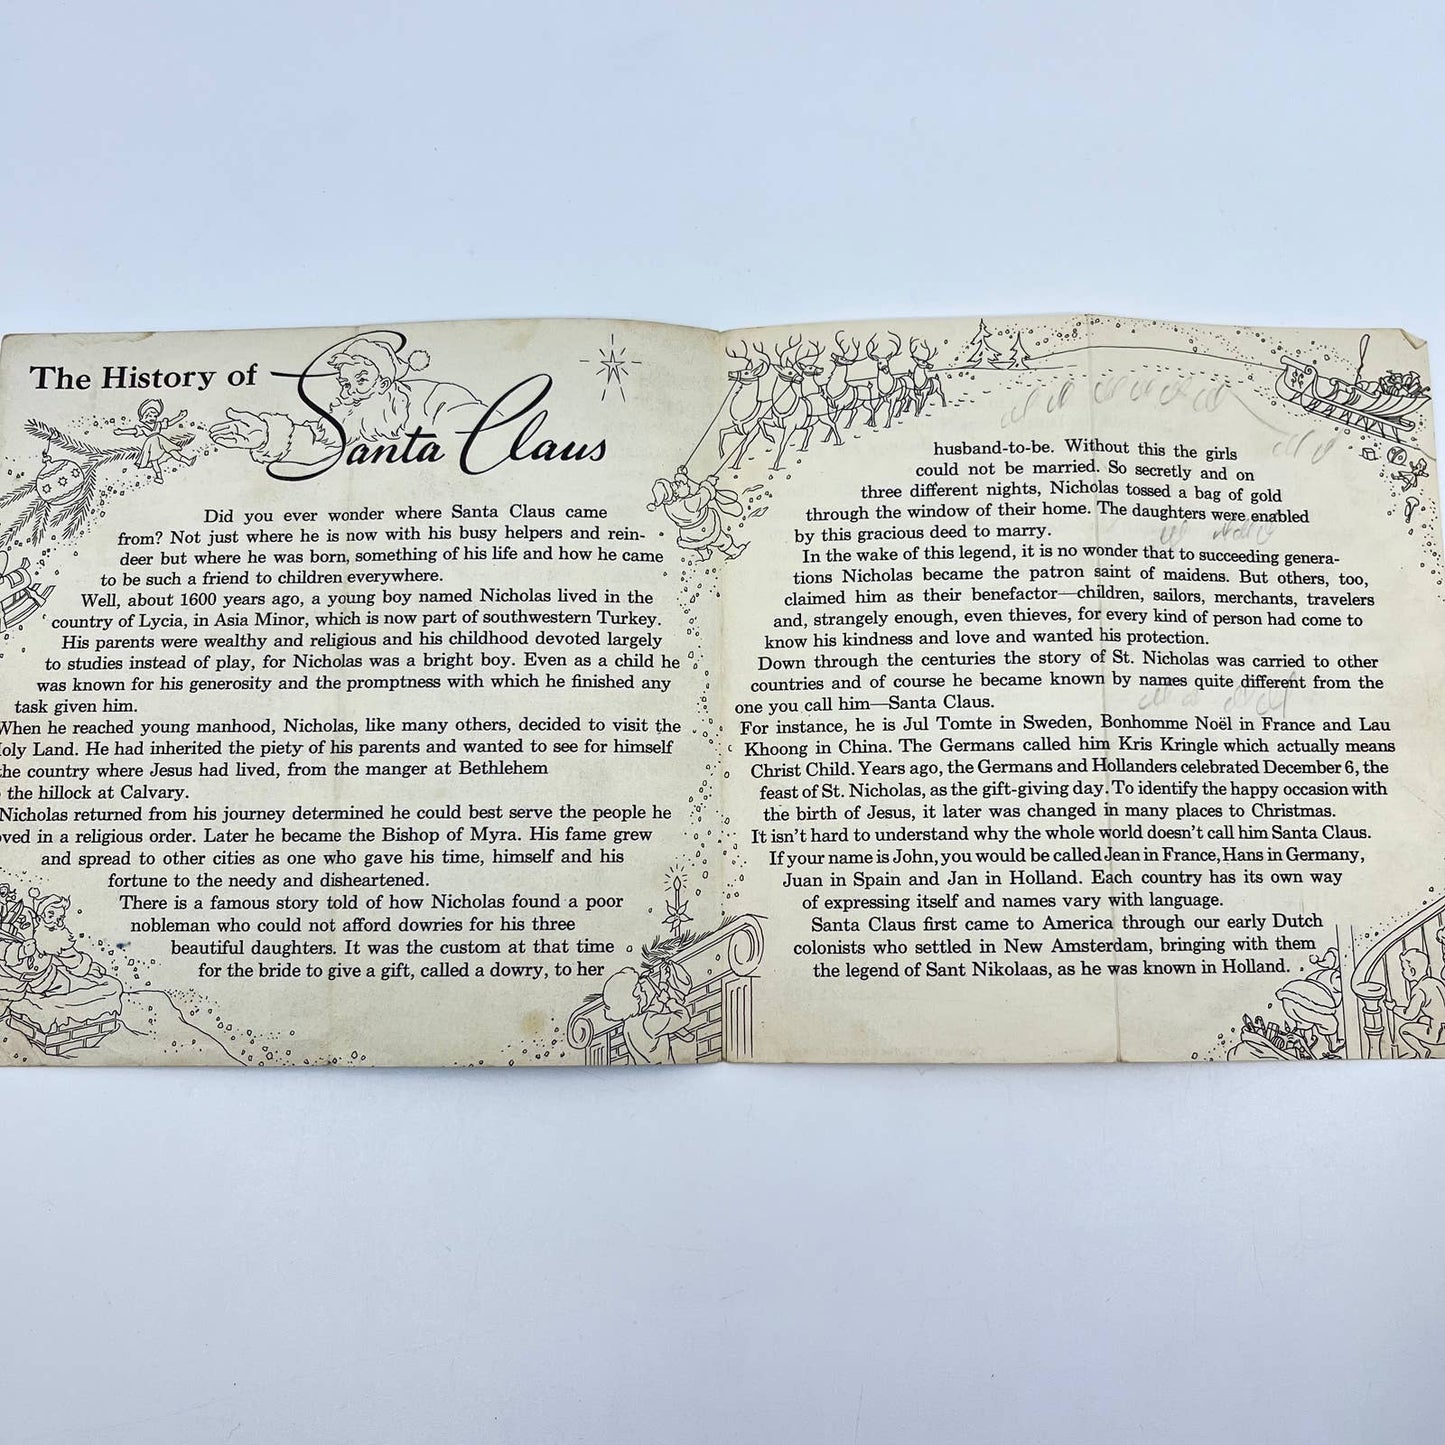 The History of Santa Claus
Did you ever wonder where Santa Claus came
from? Not just where he is now with his busy helpers and rein-
deer but where he was born, something of his life and how he came
to be such a friend to children everywhere.
Well, about 1600 years ago, a young boy named Nicholas lived in the
country of Lycia, in Asia Minor, which is now part of southwestern Turkey.
His parents were wealthy and religious and his childhood devoted largely
to studies instead of play, for Nicholas was a bright boy. Even as a child he
was known for his generosity and the promptness with which he finished any
task given him.
When he reached young manhood, Nicholas, like many others, decided to visit the
Holy Land. He had inherited the piety of his parents and wanted to see for himself
the country where Jesus had lived, from the manger at Bethlehem
the hillock at Calvary.
Nicholas returned from his journey determined he could best serve the people he
loved in a religious order. Later he became the Bishop of Myra. His fame grew
and spread to other cities as one who gave his time, himself and his
fortune to the needy and disheartened.
There is a famous story told of how Nicholas found a poor
nobleman who could not afford dowries for his three
beautiful daughters. It was the custom at that time
for the bride to give a gift, called a dowry, to her
husband-to-be. Without this the girls
could not be married. So secretly and on
three different nights, Nicholas tossed a bag of gold
through the window of their home. The daughters were enabled
by this gracious deed to marry.
In the wake of this legend, it is no wonder that to succeeding genera-
tions Nicholas became the patron saint of maidens. But others, too,
claimed him as their benefactor—children, sailors, merchants, travelers
and, strangely enough, even thieves, for every kind of person had come to
know his kindness and love and wanted his protection.
Down through the centuries the story of St. Nicholas was carried to other
countries and of course he became known by names quite different from the
one you call him—Santa Claus.
For instance, he is Jul Tomte in Sweden, Bonhomme Noël in France and Lau
Khoong in China. The Germans called him Kris Kringle which actually means
Christ Child. Years ago, the Germans and Hollanders celebrated December 6, the
feast of St. Nicholas, as the gift-giving day. To identify the happy occasion with
the birth of Jesus, it later was changed in many places to Christmas.
It isn't hard to understand why the whole world doesn't call him Santa Claus.
If your name is John, you would be called Jean in France, Hans in Germany,
Juan in Spain and Jan in Holland. Each country has its own way
of expressing itself and names vary with language.
Santa Claus first came to America through our early Dutch
colonists who settled in New Amsterdam, bringing with them
the legend of Sant Nikolaas, as he was known in Holland.